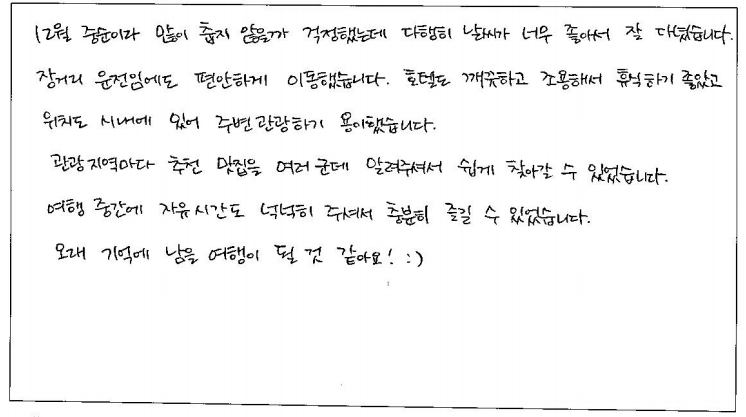 12월 중순이라 많이 춥지 않을까 걱정했는데 다행히 날씨가 너무 좋아서 잘 다녔습니다.
장거리 운전임에도 편안하게 이동했습니다. 호텔도 깨끗하고 조용해서 휴식하기 좋았고
위치도 시내에 있어 주변 관광하기 용이했습니다.
관광지역마다 추천 맛집을 여러 군데 알려주셔서 쉽게 찾아갈 수 있었습니다.
여행 중간에 자유시간도 넉넉히 주셔서 충분히 즐길 수 있었습니다.
오래 기억에 남을 여행이 될 것 같아요! :)